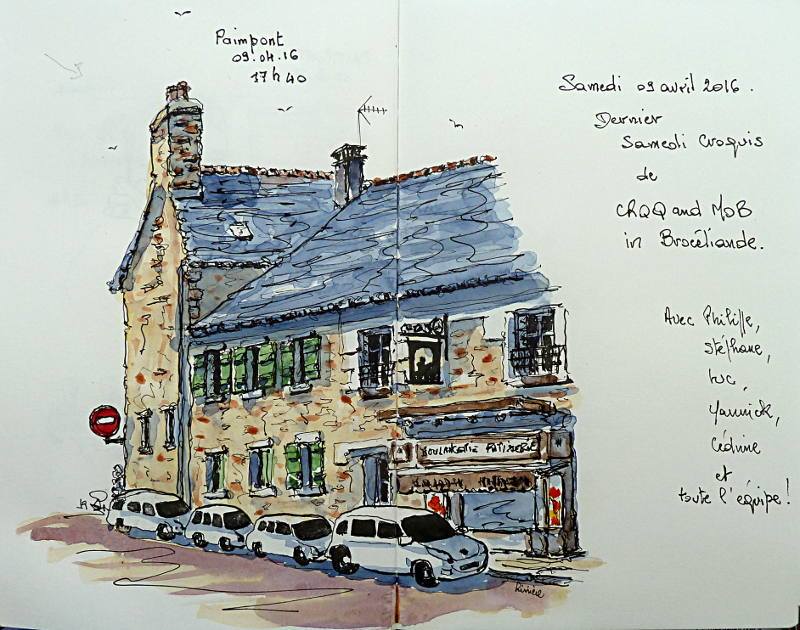 Paimpont
09.04.16
17h40
Samedi 09 avril 2016.
Dernier
Samedi Croquis
de
CROQ and MOB
in Brocéliande.
Avec Philippe,
Stéphane,
Luc,
Yannick,
Cédrine
et
toute l'équipe!
BOULANGERIE PATISSERIE